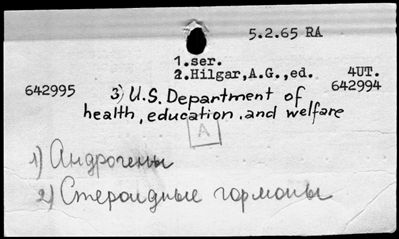 5.2.65 RA
1.ser.
2.Hilgar,A.G.,ed.
4UT.
642995
642994
3) U.S. Department of
health, education, and welfare
A
1) Андрогены
2) Стероидные гормоны